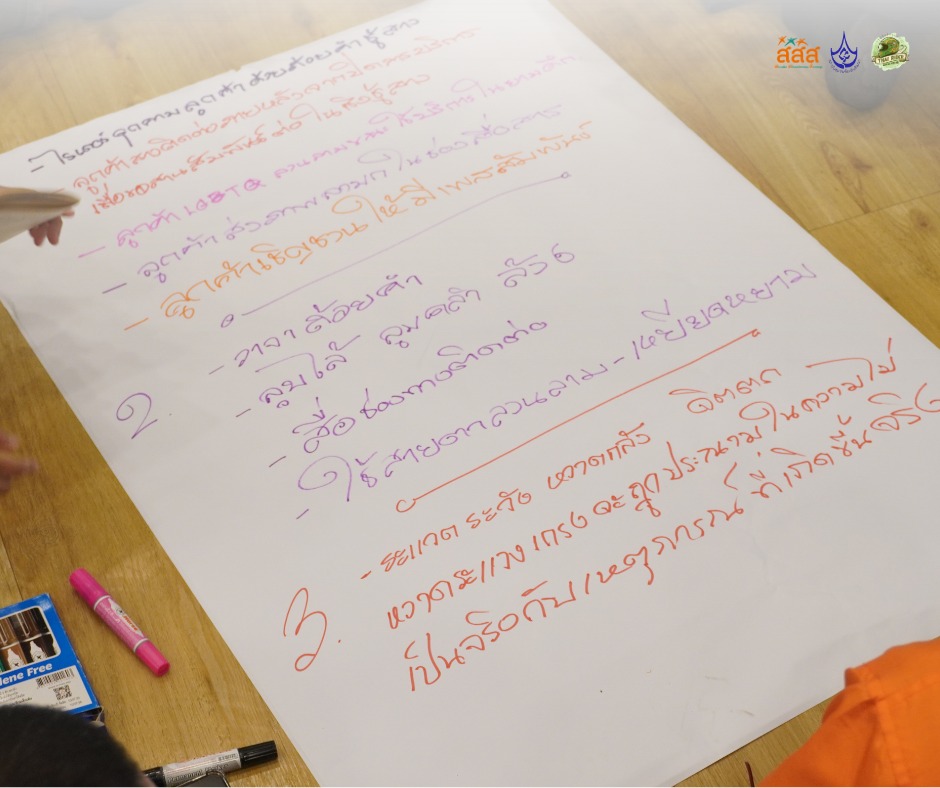 สสส
- ไรเดอร์ถูกตามลูกค้าด้วยถ้อยคำชู้สาว
- ลูกค้าสาวติดต่อสายหลังจากปิดการบริการ
เพื่อขอสานสัมพันธ์ต่อในเชิงชู้สาว
- ลูกค้า LGBTQ ลวนลามขณะใช้บริการในยามดึก
- ลูกค้าส่งภาพลามกในช่องสื่อสาร
- ลูกค้าเชิญชวนให้มีเพศสัมพันธ์
2.
- วาจา ถ้อยคำ
- ลูบไล้ ลูบคลำ ล้วง
- สื่อช่องทางติดต่อ
- ใช้สายตาลวนลาม - เหยียดหยาม
3.
- ระแวด ระวัง หวาดกลัว จิตตก
หวาดระแวง เกรงจะถูกประณามในความไม่
เป็นจริงกับเหตุการณ์ที่เกิดขึ้นจริง
lene Free